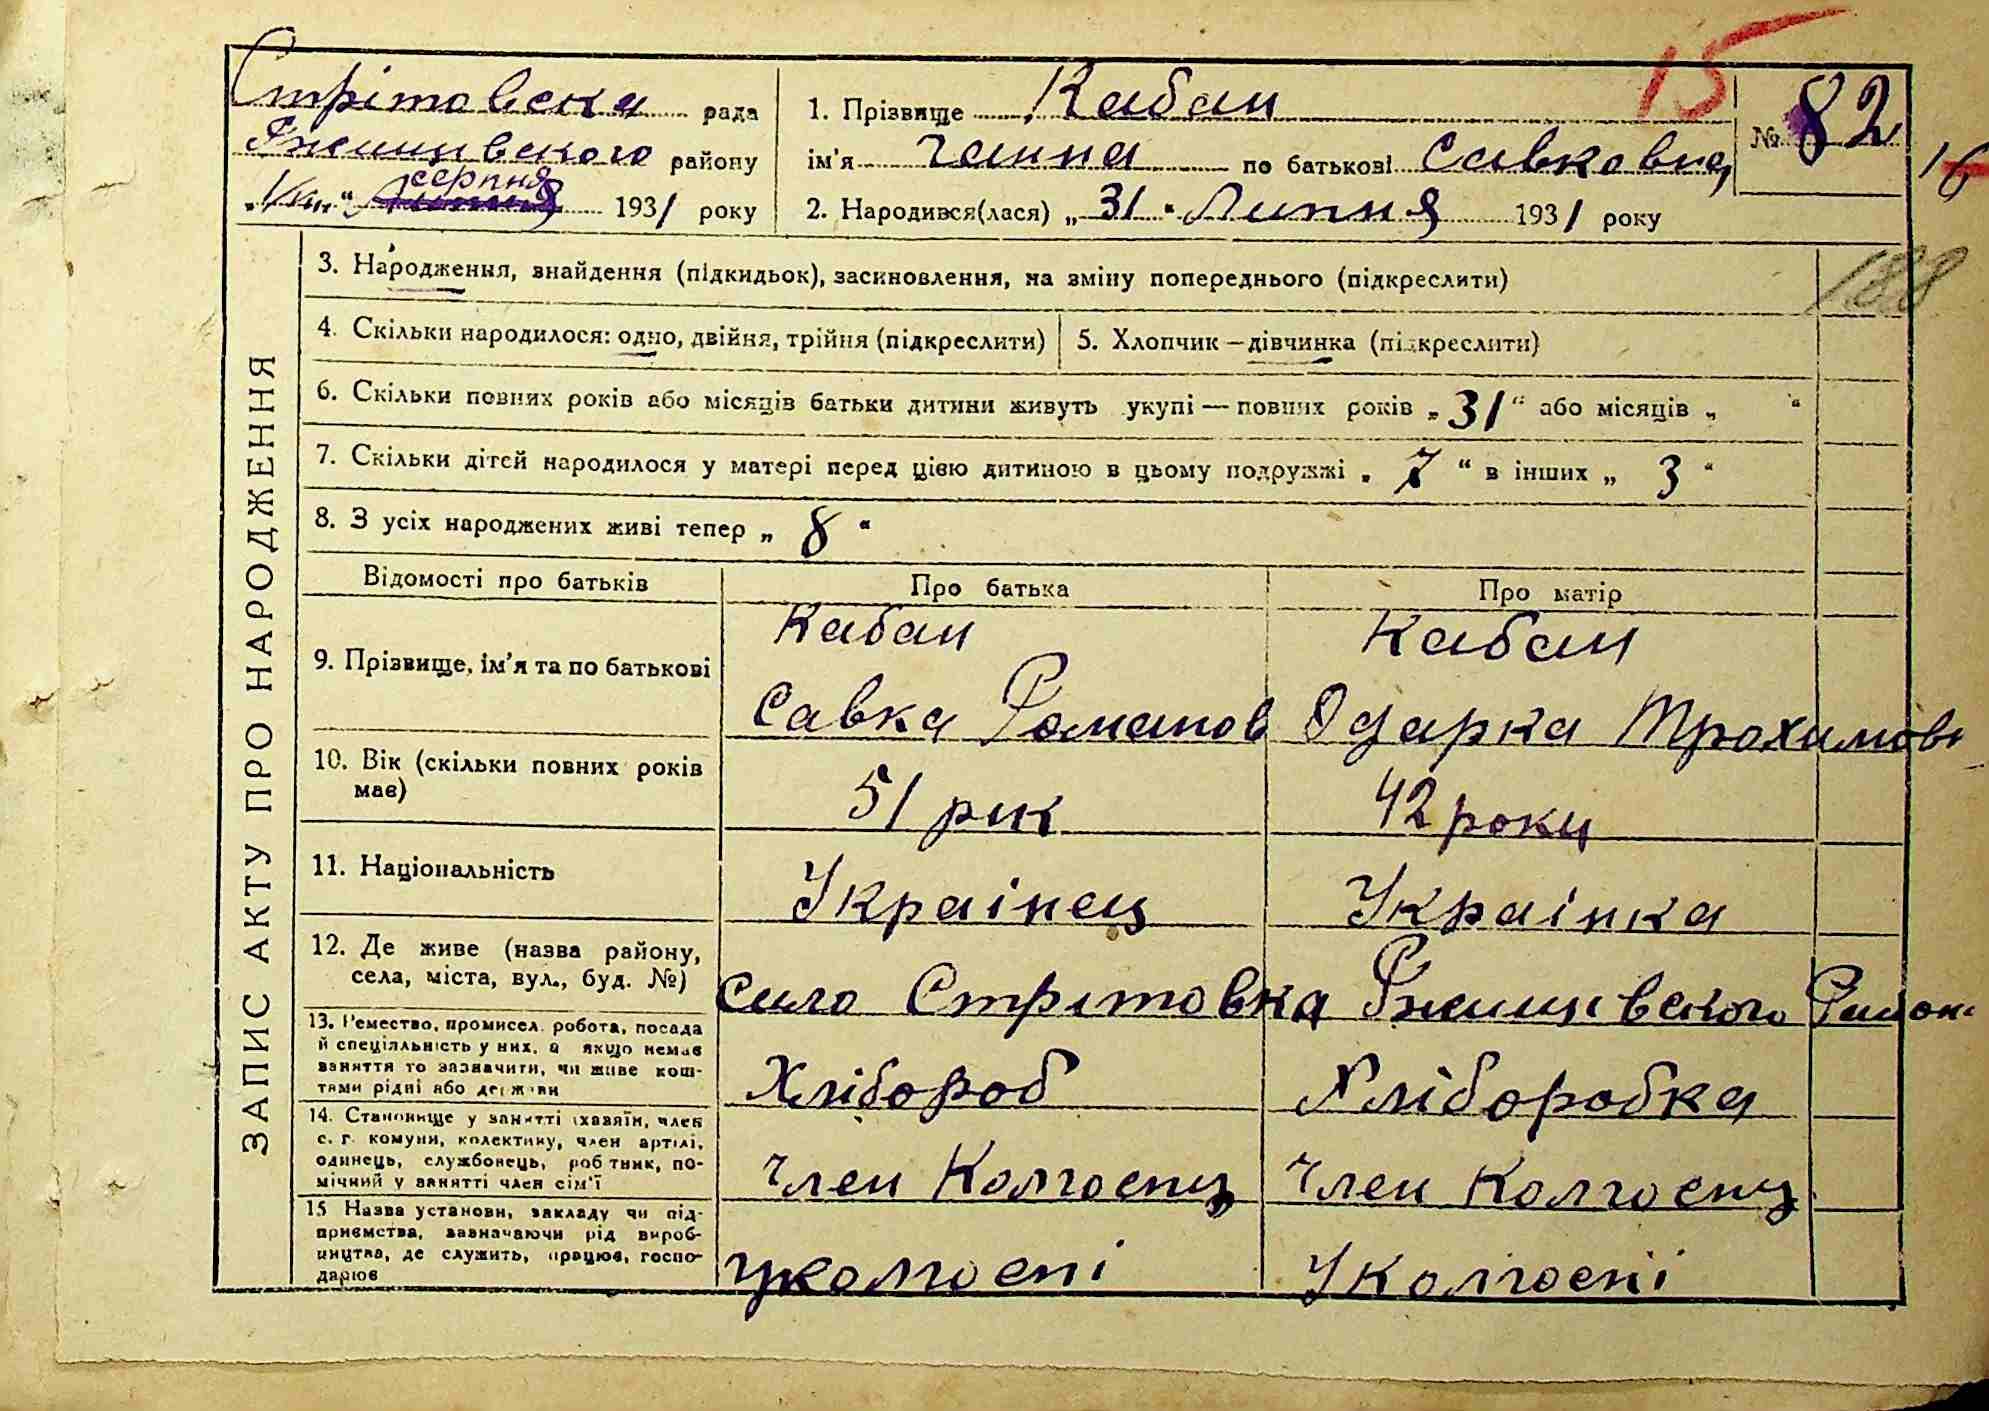 Стрітовска рада
Ржищівского району
"1го" Липня серпня 1931 року
1. Прізвище Кабан
ім'я Ганна по батькові Савковна
2. Народився(лася) „31" Липня 1931 року
15
№ 82
16
188
ЗАПИС АКТУ ПРО НАРОДЖЕННЯ
3. Народження, знайдення (підкидьок), засиновлення, на зміну попереднього (підкреслити)
4. Скільки народилося: одно, двійня, трійня (підкреслити)
5. Хлопчик — дівчинка (підкреслити)
6. Скільки повних років або місяців батьки дитини живуть укупі — повних років „31" або місяців „ "
7. Скільки дітей народилося у матері перед цією дитиною в цьому подружжі „7" в інших „3"
8. З усіх народжених живі тепер „8"
Відомості про батьків
Про батька
Про матір
9. Прізвище, ім'я та по батькові
Кабан
Савка Романов
Кабан
Одарка Трохимов
10. Вік (скільки повних років
має)
51 рик
42 роки
11. Національність
Украінец
Украінка
12. Де живе (назва району,
села, міста, вул., буд. №)
село Стрітовка Ржищівского Район
13. Ремество, промисел, робота, посада
й спеціяльність у них, а якщо немає
заняття то зазначити, чи живе кош-
тами рідні або держави
Хлібороб
Хліборобка
14. Становище у занятті (хазяїн, член
с. г. комуни, колективу, член артілі,
одинець, службовець, робітник, по-
мічний у занятті член сім'ї
член Колгоспу
член Колгоспу
15 Назва установи, закладу чи під-
приємства, зазначаючи рід вироб-
ництва, де служить, працює, госпо-
дарює
у колгоспі
у колгоспі